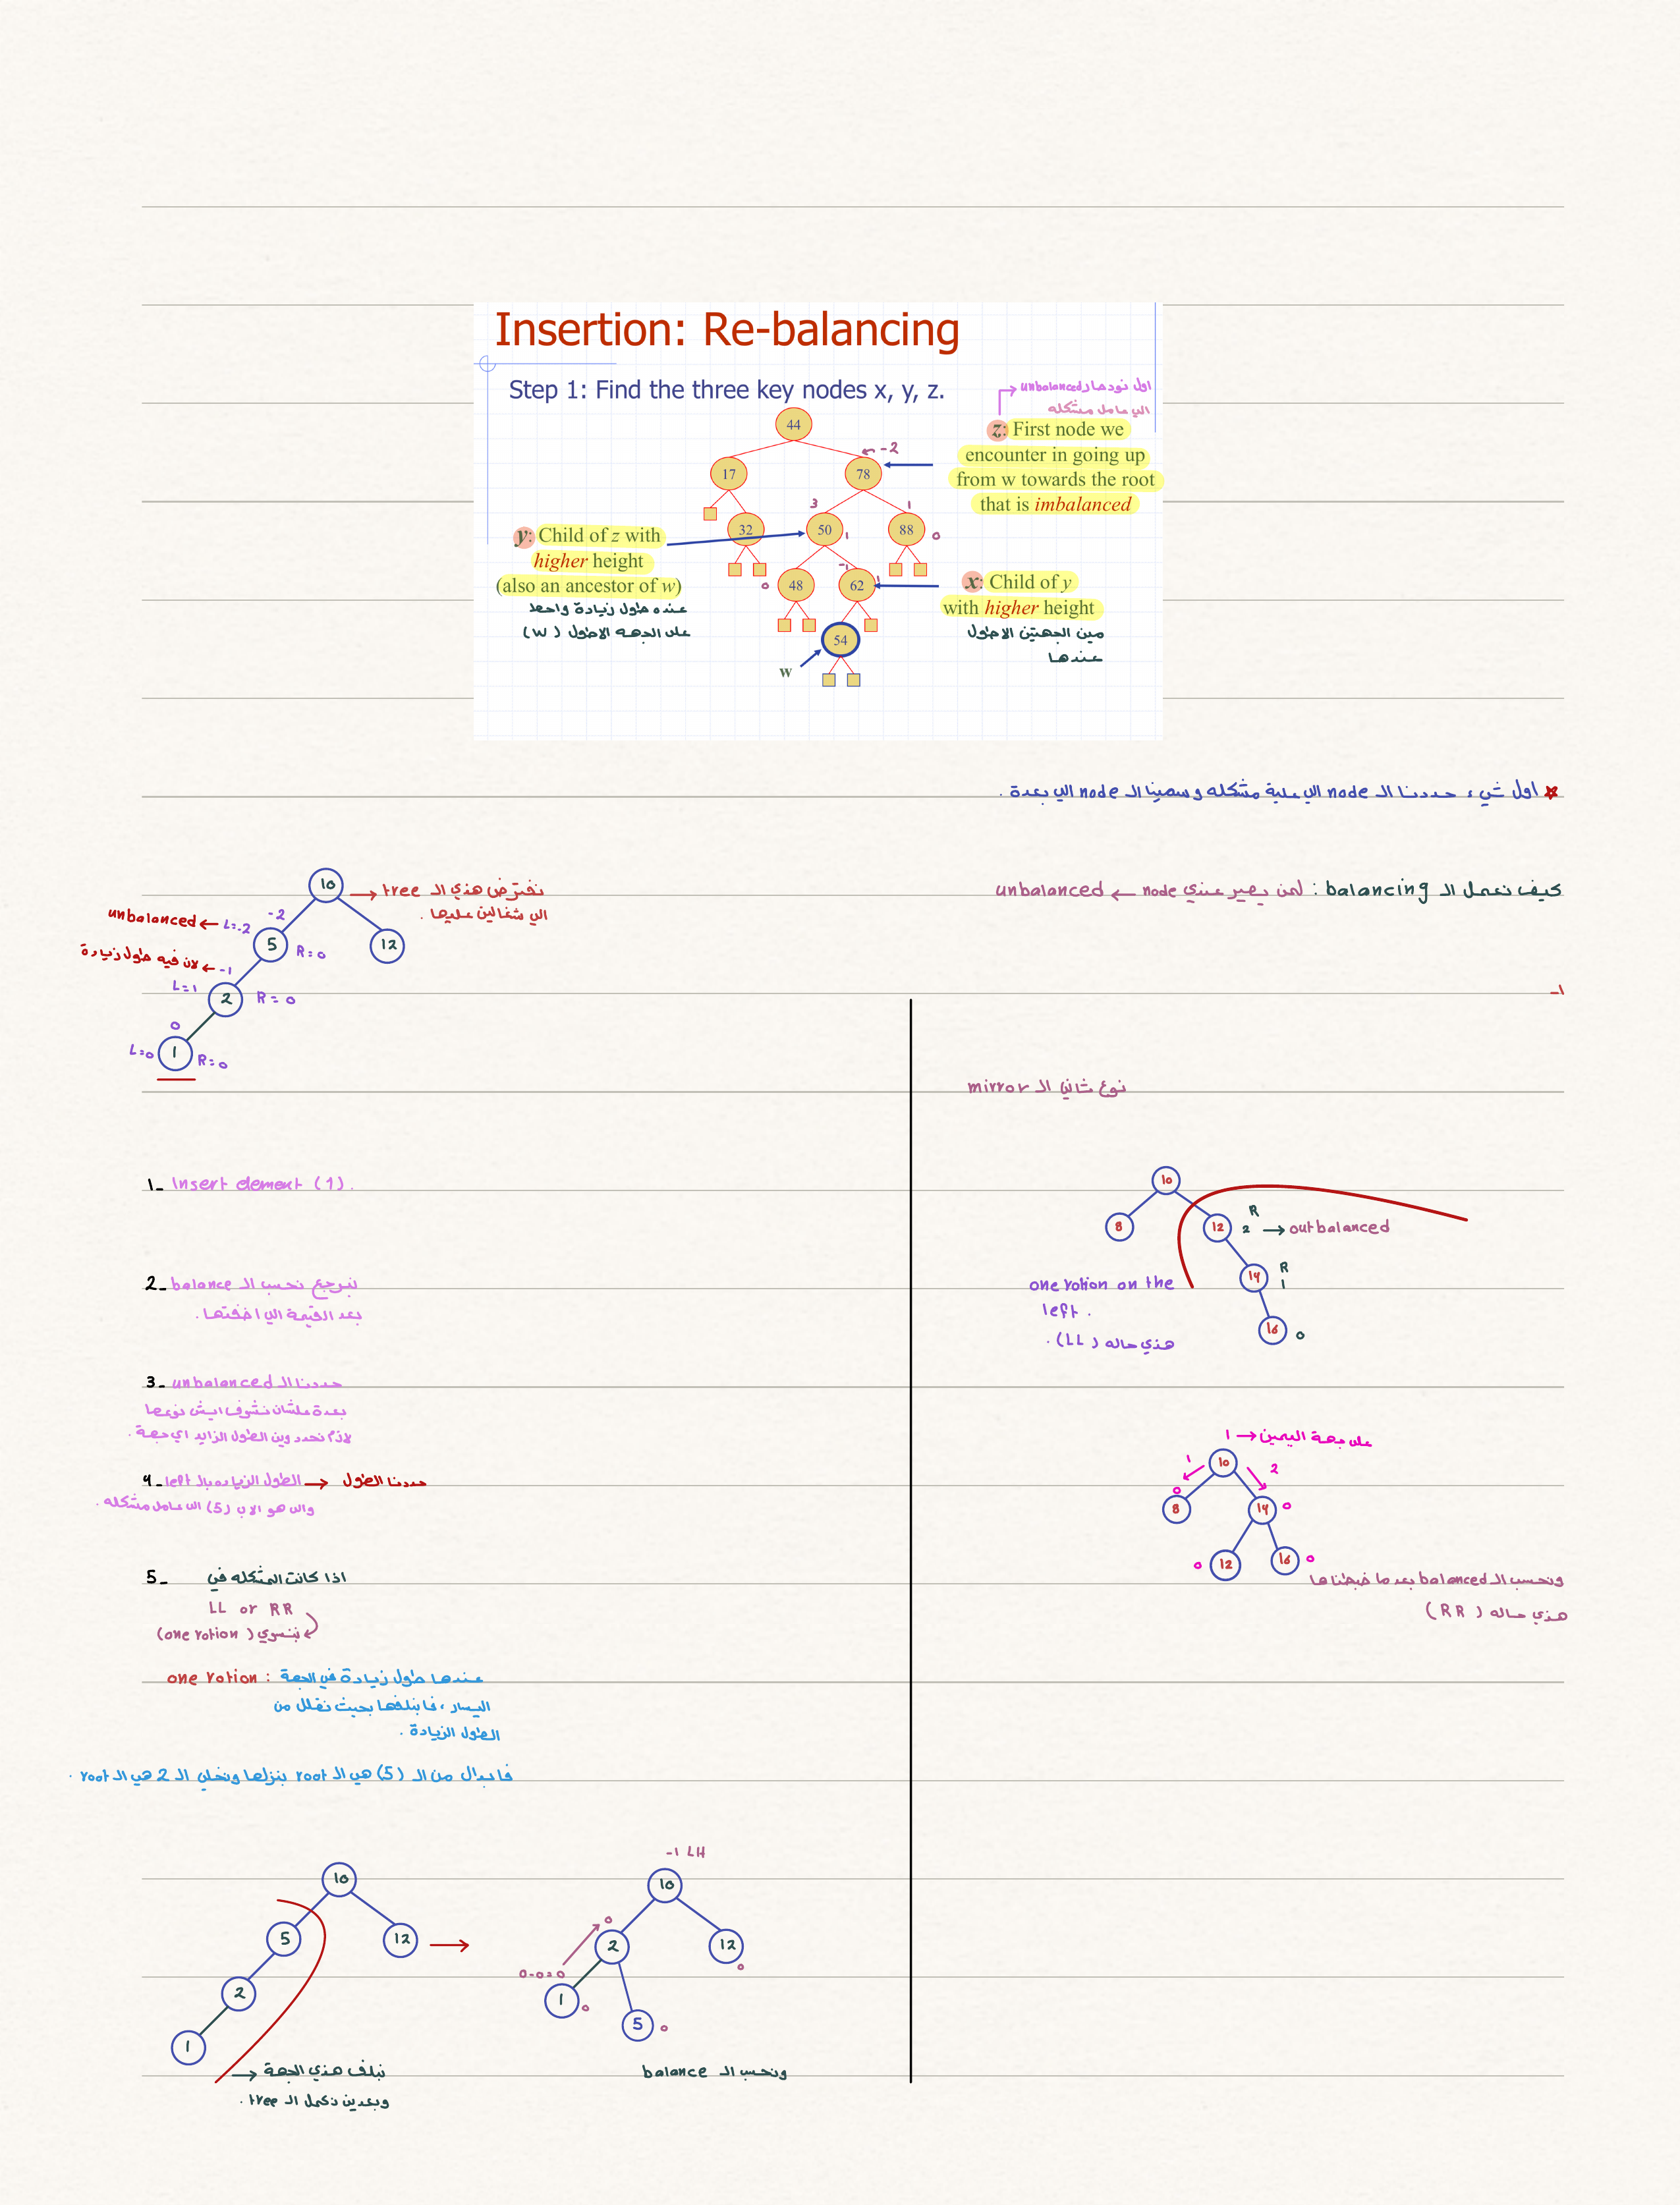 Insertion: Re-balancing
Step 1: Find the three key nodes x, y, z.
اول نود صار unbalanced
الي عامل مشكله
z: First node we
encounter in going up
from w towards the root
that is imbalanced
44
-2
17
78
3
1
32
50
1
88
0
y: Child of z with
higher height
(also an ancestor of w)
عنده طول زيادة واحط
على الجهه الاطول (w)
0
48
-1
62
1
x: Child of y
with higher height
مين الجهتين الاطول
عندها
54
w
اول شيء حددنا الـ node الي علية مشكله وسمينا الـ node الي بعدة .
كيف نعمل الـ balancing : لمن يصير عندي node ← unbalanced
١-
10 → نفترض هذي الـ tree
الي شغالين عليها .
unbalanced ← L=-2
-2
5
R=0
12
لان فيه طول زيادة ← -1
L=1
2
R=0
0
L=0
1
R=0
1- Insert element (1).
2- نرجع نحسب الـ balance
بعد القيمة الي اضفتها .
3- حددنا الـ unbalanced
بعدة علشان نشوف ايش نوعها
لازم نحدد وين الطول الزايد اي جهة .
4- الطول الزياده بالـ left → حددنا الطول
والي هو الاب (5) الي عامل مشكله .
5- اذا كانت المشكله في
LL or RR
بنسوي (one rotion)
one rotion : عندها طول زيادة في الجهة
اليسار ، فا بنلفها بحيث نقلل من
الطول الزيادة .
فا بدال من الـ (5) هي الـ root بنزلها ونخلي الـ 2 هي الـ root .
10
5
12
→
2
1
→ نبلف هذي الجهة
وبعدين نكمل الـ tree .
-1 LH
10
0
2
12
0
0-0=0
1
0
5
0
ونحسب الـ balance
نوع ثاني الـ mirror
10
8
12
R
2 → outbalanced
14
R
1
16
0
one rotion on the
left .
هذي حاله (LL) .
1 → على جهة اليمين
1
10
2
0
8
14
0
0
12
16
0
ونحسب الـ balanced بعد ما ضبطناها
هذي حاله (RR)